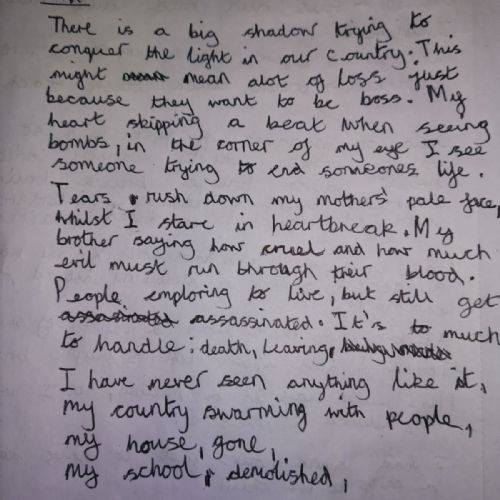 There is a big shadow trying to
conquer the light in our country. This
might mean alot of loss just
because they want to be boss. My
heart skipping a beat when seeing
bombs, in the corner of my eye I see
someone trying to end someones life.
Tears rush down my mothers' pale face,
whilst I stare in heartbreak. My
brother saying how cruel and how much
evil must run through their blood.
People emploring to live, but still get
assassinated assassinated. It's to much
to handle: death, leaving,
I have never seen anything like it,
my country swarming with people,
my house, gone,
my school, demolished,